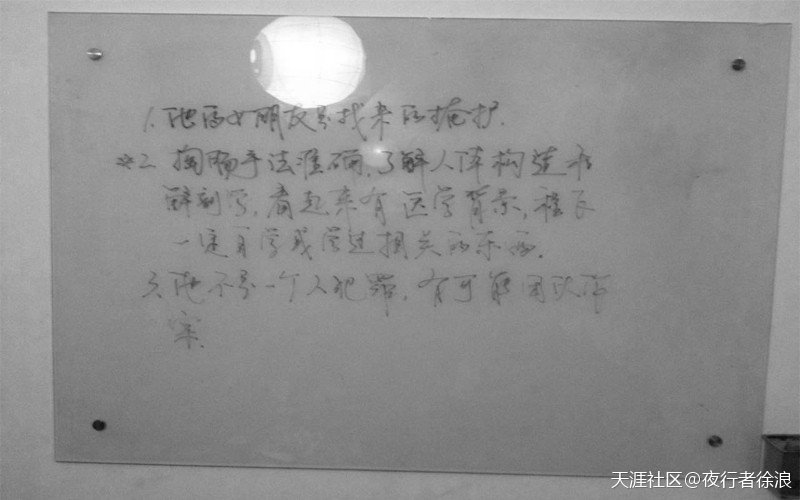 1. 他的女朋友是找来的掩护.
※2. 掏肠手法准确, 了解人体构造和
解剖学, 看起来有医学背景, 私下
一定自学或学过相关的东西.
3. 他不是一个人犯罪, 有可能团队作
案.
天涯社区@夜行者徐浪